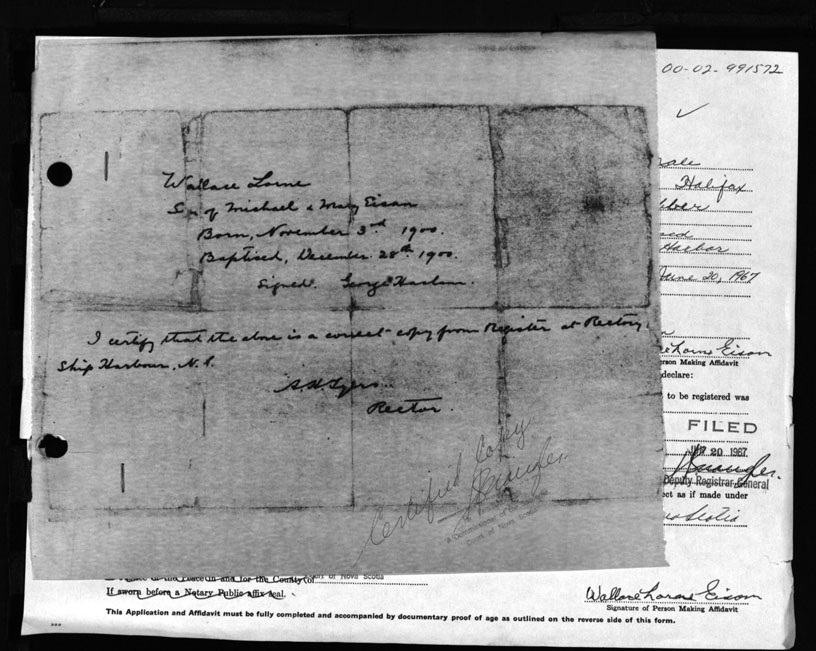 00-02-991572
Wallace Lorne
Son of Michael & Mary Eisan
Born, November 3rd 1900.
Baptised, December 28th 1900.
Signed. George Harlow
I certify that the above is a correct copy from Register at Rectory.
Ship Harbour, N.S.
Rector.
Certified Copy
Halifax
Harbor
June 20, 1967
Lorne Eisan
Person Making Affidavit
declare:
to be registered was
FILED
20 1967
Deputy Registrar General
ect as if made under
Scotia
of Nova Scotia
in and for the County of
If sworn before a Notary Public affix seal.
Wallace Lorne Eisan
Signature of Person Making Affidavit
This Application and Affidavit must be fully completed and accompanied by documentary proof of age as outlined on the reverse side of this form.